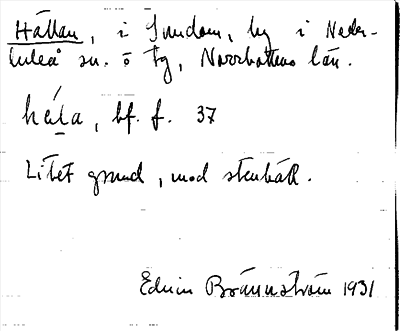 Hällan, i Sundom, by i Neder-
luleå sn. o tg, Norrbottens län.
héla, bf. f. 37
Litet grund, med stenhäll.
Edvin Brännström 1931